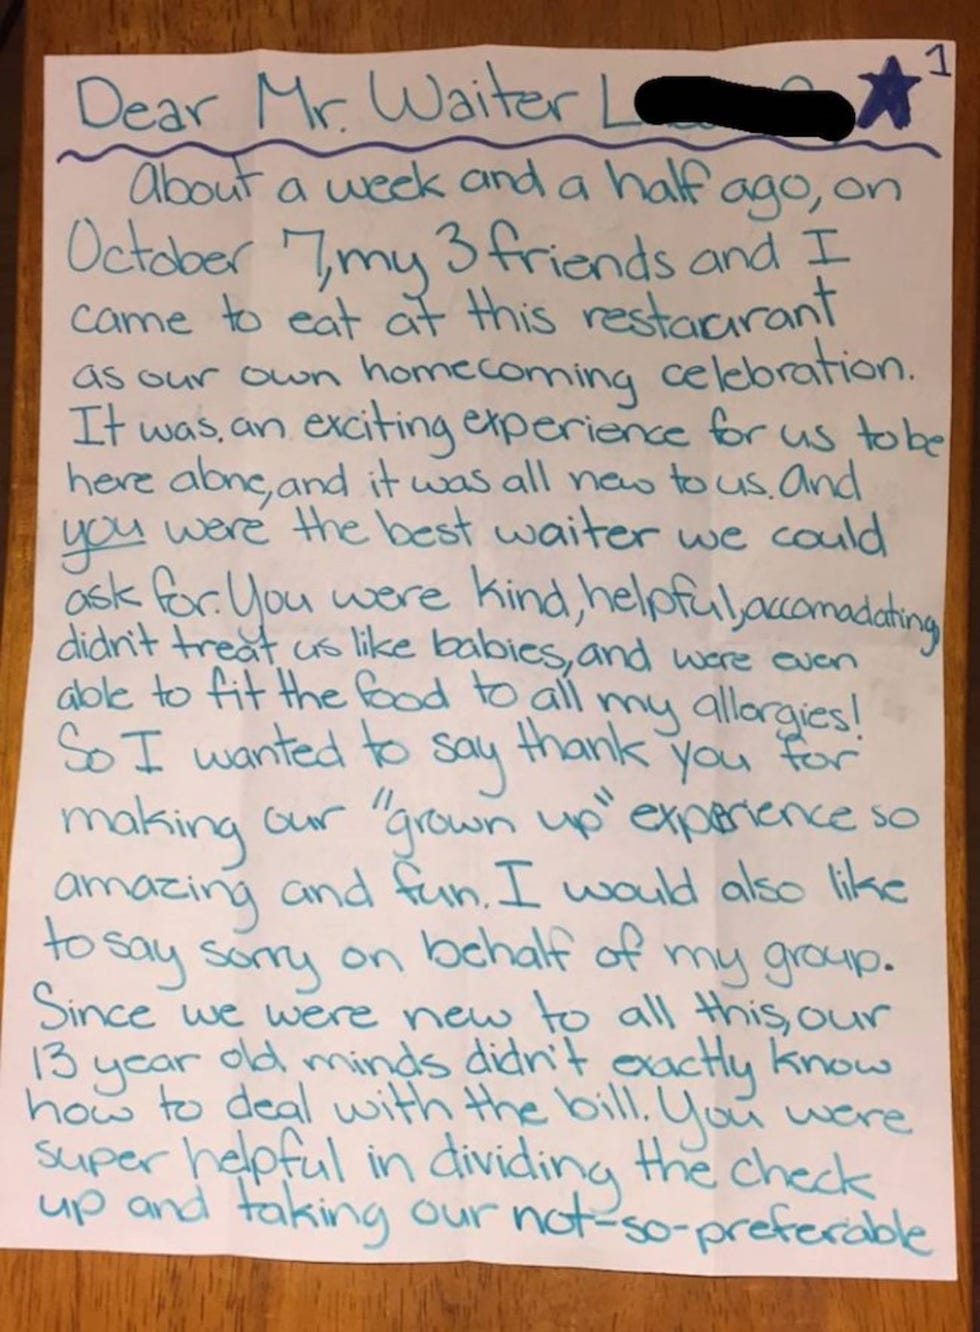 Dear Mr. Waiter L
1
About a week and a half ago, on
October 7, my 3 friends and I
came to eat at this restaurant
as our own homecoming celebration.
It was an exciting experience for us to be
here alone, and it was all new to us. And
you were the best waiter we could
ask for. You were kind, helpful, accomadating
didn't treat us like babies, and were even
able to fit the food to all my allergies!
So I wanted to say thank you for
making our "grown up" experience so
amazing and fun. I would also like
to say sorry on behalf of my group.
Since we were new to all this, our
13 year old minds didn't exactly know
how to deal with the bill. You were
super helpful in dividing the check
up and taking our not-so-preferable